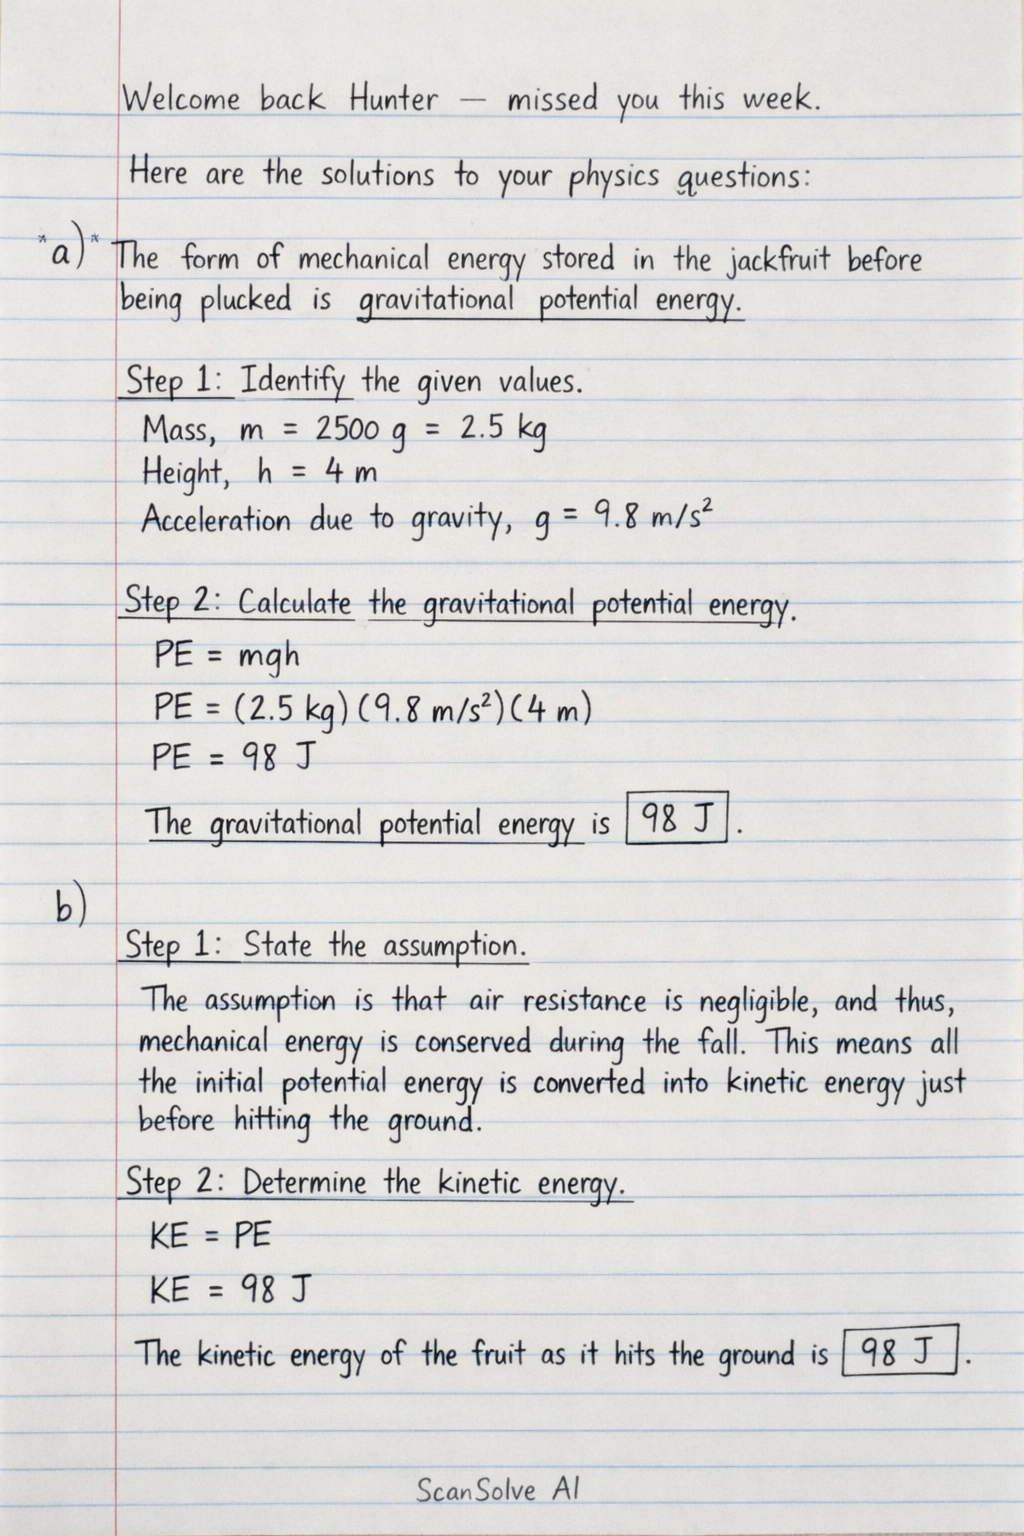 Welcome back Hunter — missed you this week.
Here are the solutions to your physics questions:
*a)* The form of mechanical energy stored in the jackfruit before
being plucked is gravitational potential energy.
Step 1: Identify the given values.
Mass, m = 2500 g = 2.5 kg
Height, h = 4 m
Acceleration due to gravity, g = 9.8 m/s²
Step 2: Calculate the gravitational potential energy.
PE = mgh
PE = (2.5 kg)(9.8 m/s²)(4 m)
PE = 98 J
The gravitational potential energy is 98 J.
b)
Step 1: State the assumption.
The assumption is that air resistance is negligible, and thus,
mechanical energy is conserved during the fall. This means all
the initial potential energy is converted into kinetic energy just
before hitting the ground.
Step 2: Determine the kinetic energy.
KE = PE
KE = 98 J
The kinetic energy of the fruit as it hits the ground is 98 J.
ScanSolve AI